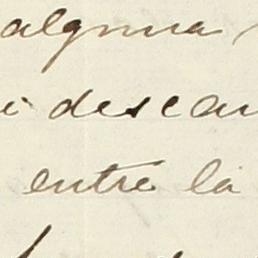 alguna
descan
entre la